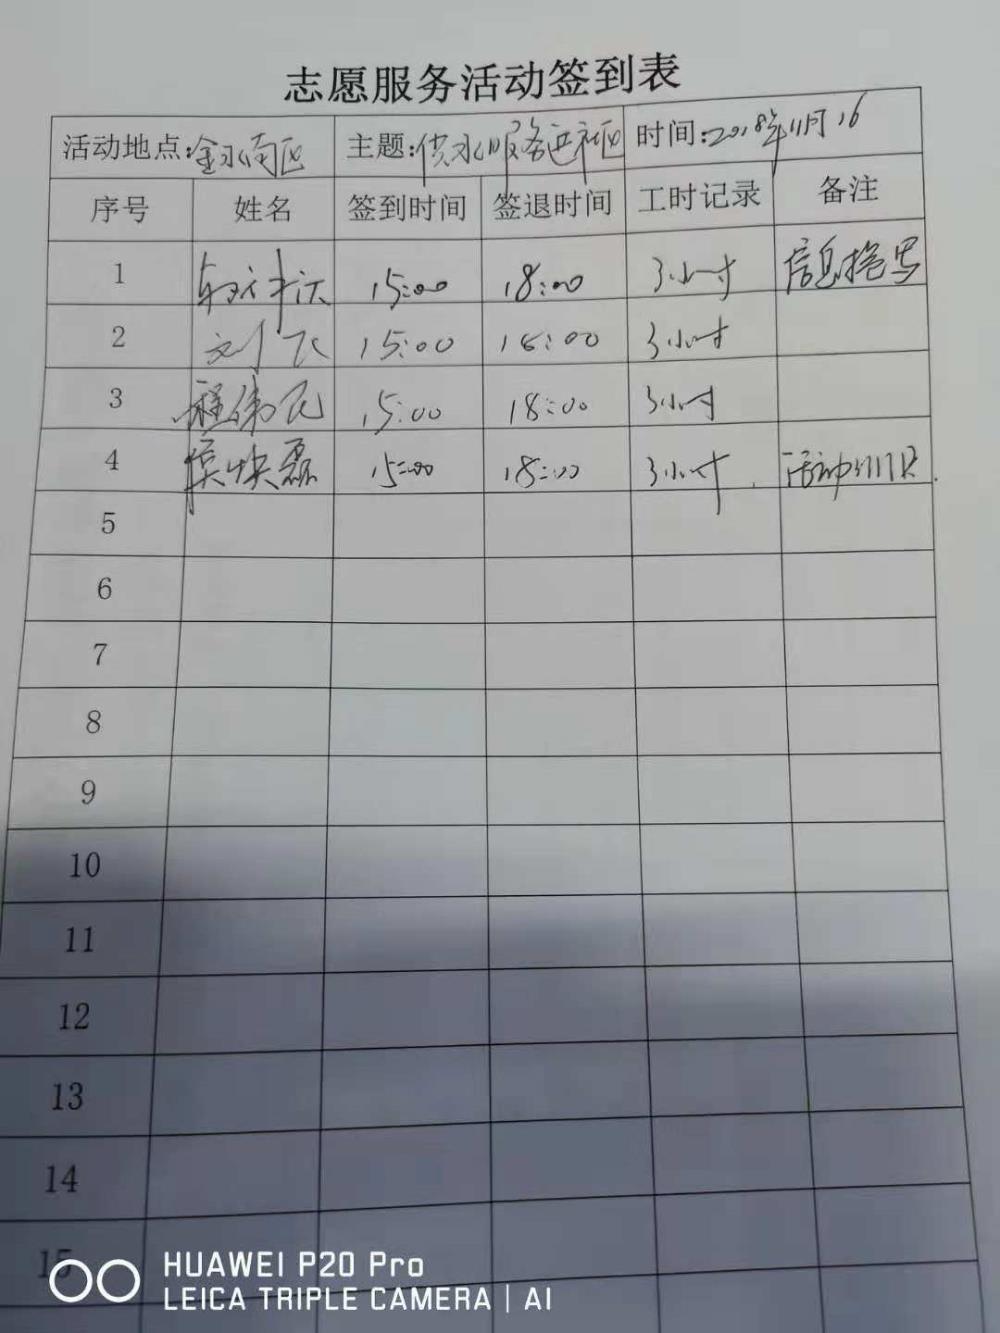 志愿服务活动签到表
活动地点:金水南区 主题:供水服务进社区 时间:2018年11月16
序号 姓名 签到时间 签退时间 工时记录 备注
1 15:00 18:00 3小时 信息撰写
2 刘飞 15:00 18:00 3小时
3 程伟民 15:00 18:00 3小时
4 15:00 18:00 3小时 活动
5
6
7
8
9
10
11
12
13
14
15
HUAWEI P20 Pro
LEICA TRIPLE CAMERA | AI